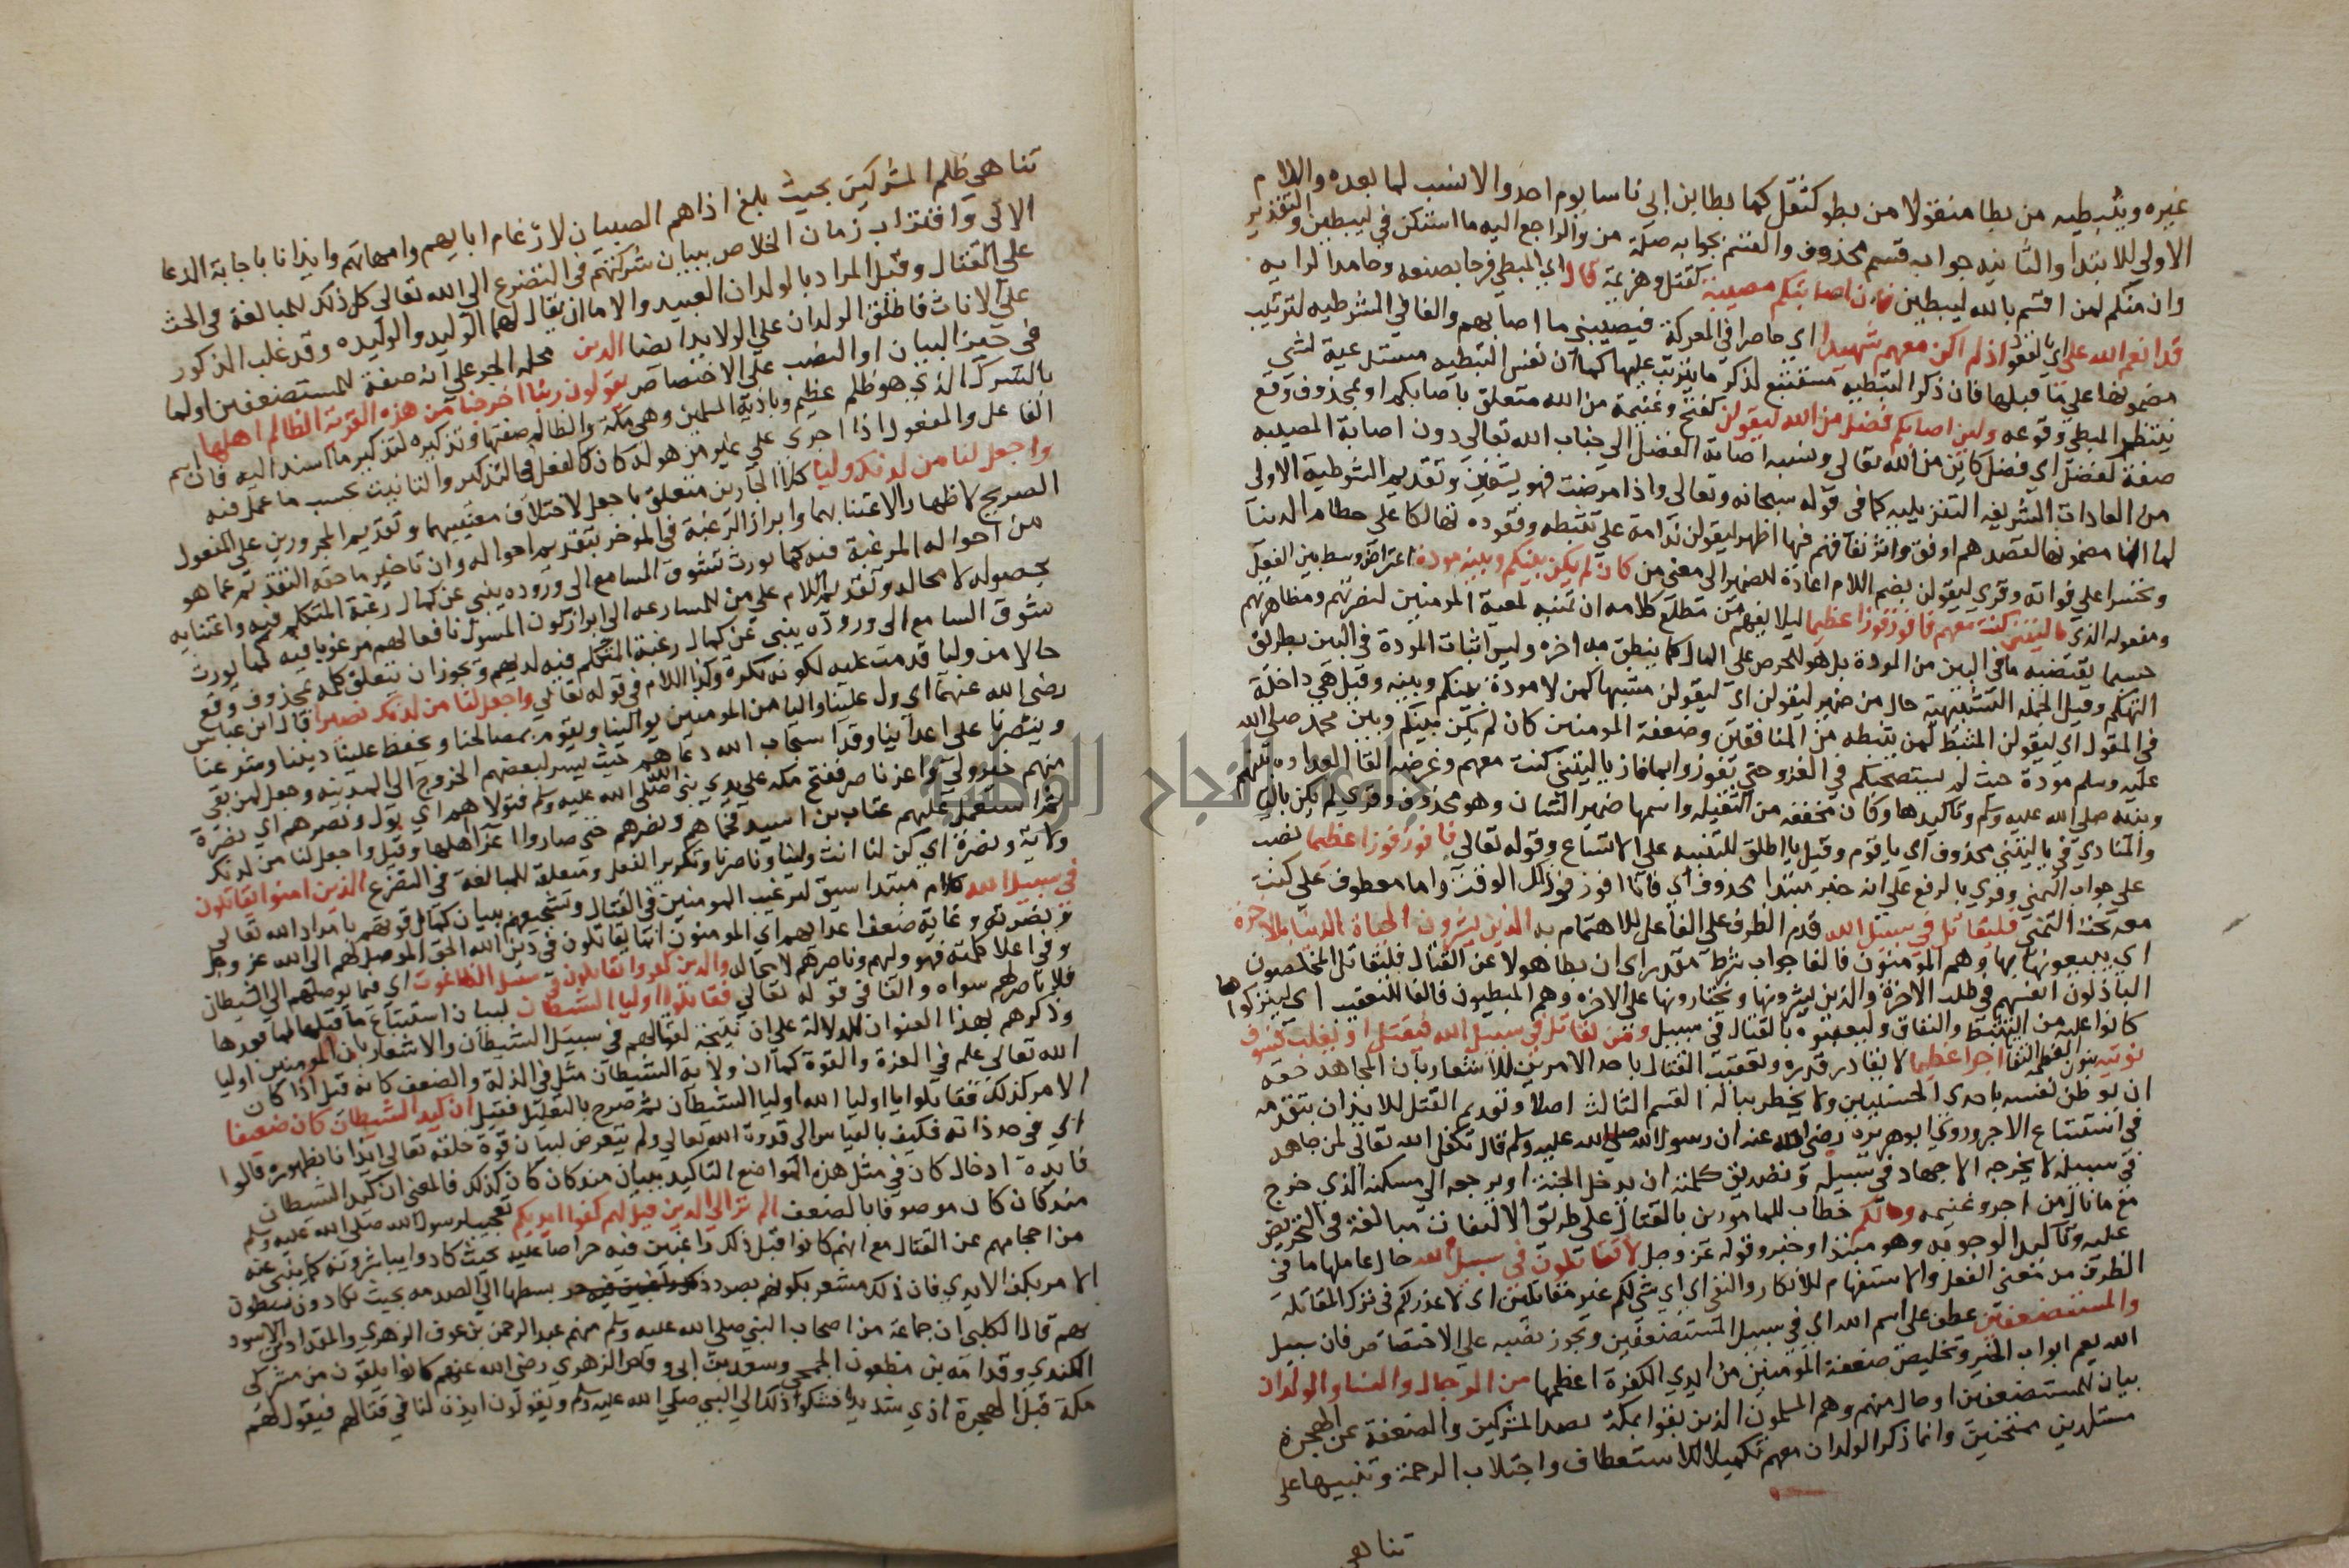 غيره ويثبطيه من بطا منقولا من بطو كثقل كما بطا بن ابي ناسا يوم احد والانسب لما بعده واللام
الاولي للابتدا والثانيه جواب قسم محذوف والقسم بجوابه صلة من والراجع اليه ما استكن في ليبطين والتقدير
وان منكم لمن اقسم بالله ليبطين فان اصابتكم مصيبة كقتل وهزيمة قال اي المبطي فرحا بصنعه وحامدا لرايه
قد انعم الله علي اي بالقعود اذ لم اكن معهم شهيدا اي حاضرا في المعركة فيصيبني ما اصابهم والفا في الشرطيه لترتيب
مضمونها علي ما قبلها فان ذكر التبطيه مستتبع لذكر ما يترتب عليها كما ان نفس التبطيه مستدعية لشي
ينتظر المبطي وقوعه ولين اصابكم فضل من الله ليقولن كفتح وغنيمة من الله متعلق باصابكم او بمحذوف وقع
صفة لفضل اي فضل كاين من الله تعالي ونسبه اصابة الفضل الي جناب الله تعالي دون اصابة المصيبه
من العادات الشريفه التنزيليه كما في قوله سبحانه وتعالي واذا مرضت فهو يشفين وتقديم الشرطية الاولي
لما انها مضمونها لقصدهم اوفق واثر نفاقهم فيها اظهر ليقولن ندامة علي تثبطه وقعوده تهالكا علي حطام الدنيا
وتحسرا علي فواته وقري ليقولن بضم اللام اعادة للضمير الي معني من كان لم يكن بينكم وبينه مودة اعتراض وسط بين الفعل
ومفعوله الذي يا ليتني كنت معهم فافوز فوزا عظيما ليلا يفهم من مطلع كلامه ان تمنيه لمعية المومنين لنصرتهم ومظاهرتهم
حسبما يقتضيه ما في البين من المودة بل هو للحرص علي المال كما ينطق به اخره وليس اثبات المودة في البين بطريق
التهكم وقيل الجمله التشبيهية حال من ضمير ليقولن اي ليقولن مشبها كمن لا مودة بينكم وبينه وقيل هي داخلة
في المقول اي ليقولن المثبط لمن يثبطه من المنافقين وضعفة المومنين كان لم يكن بينكم وبين محمد صلي الله
عليه وسلم مودة حيث لم يستصحبكم في الغزو حتي تفوزوا بما فاز يا ليتني كنت معهم وغرضه القا العداوه بينهم
وبينه صلي الله عليه وسلم وتاكيدها وكان مخففه من الثقيله واسمها ضمير الشان وهو محذوف وقري لم يكن باليا
والمنادي في يا ليتني محذوف اي يا قوم وقيل يا اطلق للتنبيه علي الاتساع وقوله تعالي فافوز فوزا عظيما نصب
علي جواب التمني وقري بالرفع علي انه خبر مبتدا محذوف اي فانا افوز في ذلك الوقت واما معطوف علي كنت
معه تحت التمني فليقاتل في سبيل الله قدم الظرف علي الفاعل للاهتمام به الذين يشرون الحياة الدنيا بالاخرة
اي يبيعونها بها وهم المومنون فالفا جواب شرط مقدر اي ان بطا هولا عن القتال فليقاتل المخلصون
الباذلون انفسهم في طلب الاخرة والذين يشرونها ويختارونها علي الاخره وهم المبطيون فالفا للتعقيب اي ليتركوا ما
كانوا عليه من التثبيط والنفاق وليعقبوه بالقتال في سبيل ومن يقاتل في سبيل الله فيقتل او يغلب فسوف
نوتيه بنون العظمه التفا اجرا عظيما لا يقادر قدره وتعقيب القتال باحد الامرين للاشعار بان المجاهد حقه
ان يوطن نفسه باحدي الحسنيين ولا يخطر بباله القسم الثالث اصلا وتقديم القتل للايذان بتقدمه
في استتباع الاجر وروي ابو هريره رضي الله عنه ان رسول الله صلي الله عليه وسلم قال تكفل الله تعالي لمن جاهد
في سبيله لا يخرجه الا جهاد في سبيله وتصديق كلمته ان يدخل الجنة او يرجعه الي مسكنه الذي خرج
مع ما نال من اجر وغنيمه ومالكم خطاب للمامورين بالقتال علي طريق الالتفات مبالغة في التحريض
عليه وتاكيد الوجوبه وهو مبتدا وخبر وقوله عز وجل لا تقاتلون في سبيل الله حال عاملها ما في
الظرف من معني الفعل والاستفهام للانكار والنفي اي اي شي لكم غير مقاتلين اي لا عذر لكم في ترك المقاتله
والمستضعفين عطف علي اسم الله اي في سبيل المستضعفين ويجوز نصبه علي الاختصاص فان سبيل
الله يعم ابواب الخير وتخليص ضعفة المومنين من ايدي الكفرة اعظمها من الرجال والنسا والولدان
بيان للمستضعفين او حال منهم وهم المسلمون الذين بقوا بمكة لصد المشركين والضعفة عن الهجرة
مستذلين ممتحنين وانما ذكر الولدان معهم تكميلا للاستعطاف واجتلاب الرحمة وتنبيها علي
تناهي
تناهي ظلم المشركين بحيث بلغ اذاهم الصبيان لارغام ابايهم وامهاتهم وايذانا باجابة الدعا
الاتي واقتراب زمان الخلاص ببيان شركتهم في التضرع الي الله تعالي كل ذلك للمبالغة في الحث
علي القتال وقيل المراد بالولدان العبيد والاما اذ يقال لهما الوليد والوليده وقد غلب الذكور
علي الاناث فاطلق الولدان علي الولايد ايضا الذين محله الجر علي انه صفة للمستضعفين او لما
في حيز البيان او النصب علي الاختصاص يقولون ربنا اخرجنا من هذه القرية الظالم اهلها
بالشرك الذي هو ظلم عظيم وباذية المسلمين وهي مكة والظالم صفتها وتذكيره لتذكير ما اسند اليه فان اسم
الفاعل والمفعول اذا اجري علي غير من هو له كان كالفعل في التذكير والتانيث بحسب ما عمل فيه
واجعل لنا من لدنك وليا كلا الجارين متعلق باجعل لاختلاف معنييهما وتقديم المجرورين علي المفعول
الصريح لاظهار الاعتنا بهما وابراز الرغبة في الموخر بتقديم احواله وان تاخير ما حقه التقديم عما هو
من احواله المرغبة فيه كما يورث تشوق السامع الي وروده ينبي عن كمال رغبة المتكلم فيه واعتنايه
بحصوله لا محاله وتقديم اللام علي من للمسارعه الي ابراز كون المسول نافعا لهم مرغوبا فيه كما يورث
شوق السامع الي وروده ينبي عن كمال رغبة المتكلم فيه لديهم ويجوز ان تتعلق كلمه بمحذوف وقع
حالا من وليا قدمت عليه لكونه نكرة وكذا اللام في قوله تعالي واجعل لنا من لدنك نصيرا قال ابن عباس
رضي الله عنهما اي ول علينا واليا من المومنين يوالينا ويقوم بمصالحنا ويحفظ علينا ديننا وشرعنا
وينصرنا علي اعداينا وقد استجاب الله دعاهم حيث يسر لبعضهم الخروج الي المدينه وجعل لمن بقي
منهم خير ولي واعز ناصر ففتح مكه علي يدي نبي الله صلي الله عليه وسلم فتولاهم اي تول ونصرهم اي نصرة
ثم استعمل عليهم عتاب بن اسيد فحماهم ونصرهم حتي صاروا اعز اهلها وقيل واجعل لنا من لدنك
ولاية ونصرة اي كن لنا انت ولينا وناصرنا وتكرير الفعل ومتعلقه للمبالغة في التضرع الذين امنوا يقاتلون
في سبيل الله كلام مبتدا سيق لترغيب المومنين في القتال وتشجيعهم ببيان كمال قوتهم بامداد الله تعالي
ونصرته وغاية ضعف اعدايهم اي المومنون انما يقاتلون في دين الله الحق الموصل لهم الي الله عز وجل
وفي اعلا كلمته فهو وليهم وناصرهم لا محاله والذين كفروا يقاتلون في سبيل الطاغوت اي فيما يوصلهم الي الشيطان
فلا ناصر لهم سواه والفا في قوله تعالي فقاتلوا اوليا الشيطان لبيان استتباع ما قبلها لما بعدها
وذكرهم بهذا العنوان للدلالة علي ان نتيجة لقتالهم في سبيل الشيطان والاشعار بان المومنين اوليا
الله تعالي علم في العزة والقوة كما ان ولاية الشيطان مثل في الذلة والضعف كانه قيل اذا كان
الامر كذلك فقاتلوا يا اوليا الله اوليا الشيطان ثم صرح بالتعليل فقيل ان كيد الشيطان كان ضعيفا
اي في حد ذاته فكيف بالقياس الي قدرة الله تعالي ولم يتعرض لبيان قوة خلقه تعالي ايذانا بظهوره قالوا
فايدة ادخال كان في مثل هذه المواضع التاكيد ببيان منذ كان كان كذلك فالمعني ان كيد الشيطان
منذ كان كان موصوفا بالضعف الم تر الي الذين قيل لهم كفوا ايديكم تعجيب لرسول الله صلي الله عليه وسلم
من احجامهم عن القتال مع انهم كانوا قبل ذلك راغبين فيه حراصا عليه بحيث كادوا يباشرونه كما ينبي عنه
الامر بكف الايدي فان ذلك مشعر بكونهم بصدد بسطها الي العدو بحيث يكادون يسطون
بهم قال الكلبي ان جماعة من اصحاب النبي صلي الله عليه وسلم منهم عبد الرحمن بن عوف الزهري والمقداد بن الاسود
الكندي وقدامه بن مظعون الجمحي وسعد بن ابي وقاص الزهري رضي الله عنهم كانوا يلقون من مشركي
مكة قبل الهجرة اذي شديدا فيشكوا ذلك الي النبي صلي الله عليه وسلم ويقولون ايذن لنا في قتالهم فيقول لهم